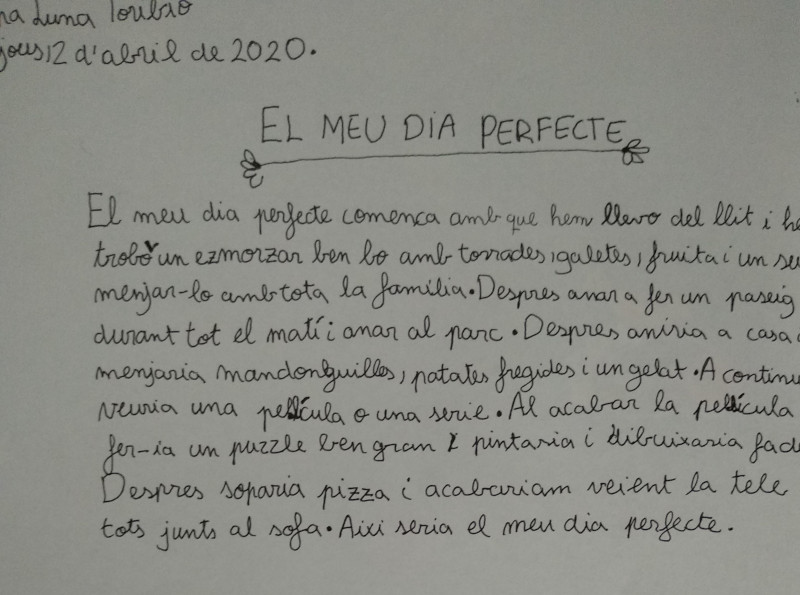 na Luna Toubxo
jous,12 d'abril de 2020.
EL MEU DIA PERFECTE
El meu dia perfecte comenca amb que hem llevo del llit i he
trobo un ezmorzar ben bo amb torrades, galetes, fruita i un su
menjar-lo amb tota la família. Despres anar a fer un paseig
durant tot el matí i anar al parc. Despres aniria a casa
menjaria mandonguilles, patates fregides i un gelat. A continu
veuria una película o una serie. Al acabar la película
fer-ia un puzzle ben gran i pintaria i dibuixaria fade
Despres soparia pizza i acabariam veient la tele
tots junts al sofa. Aixi seria el meu dia perfecte.